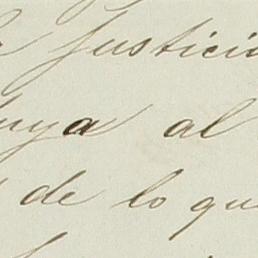 Justicia
uya al
de lo que